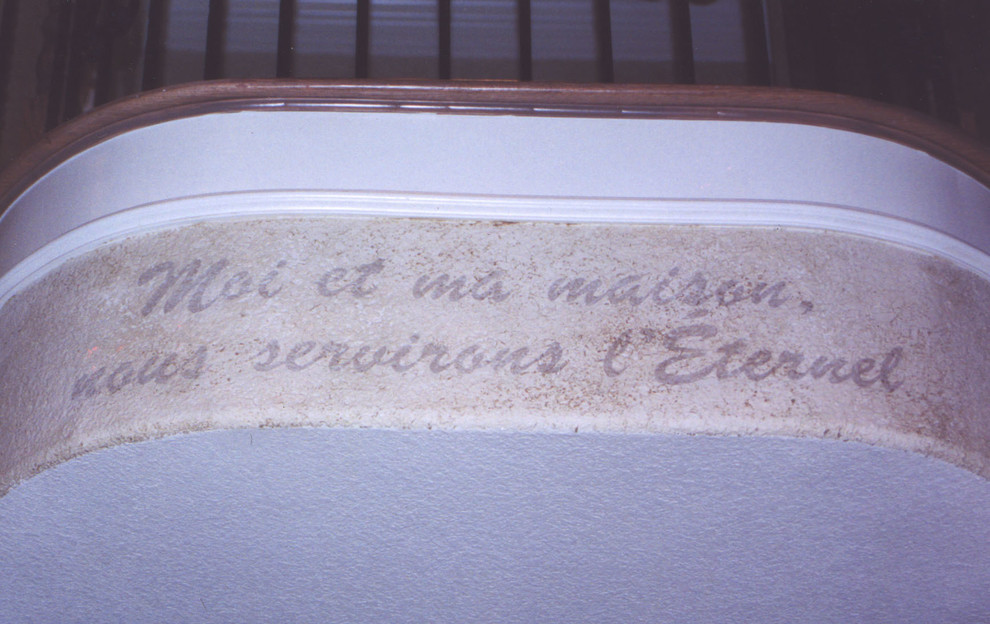 Moi et ma maison,
nous servirons l'Éternel